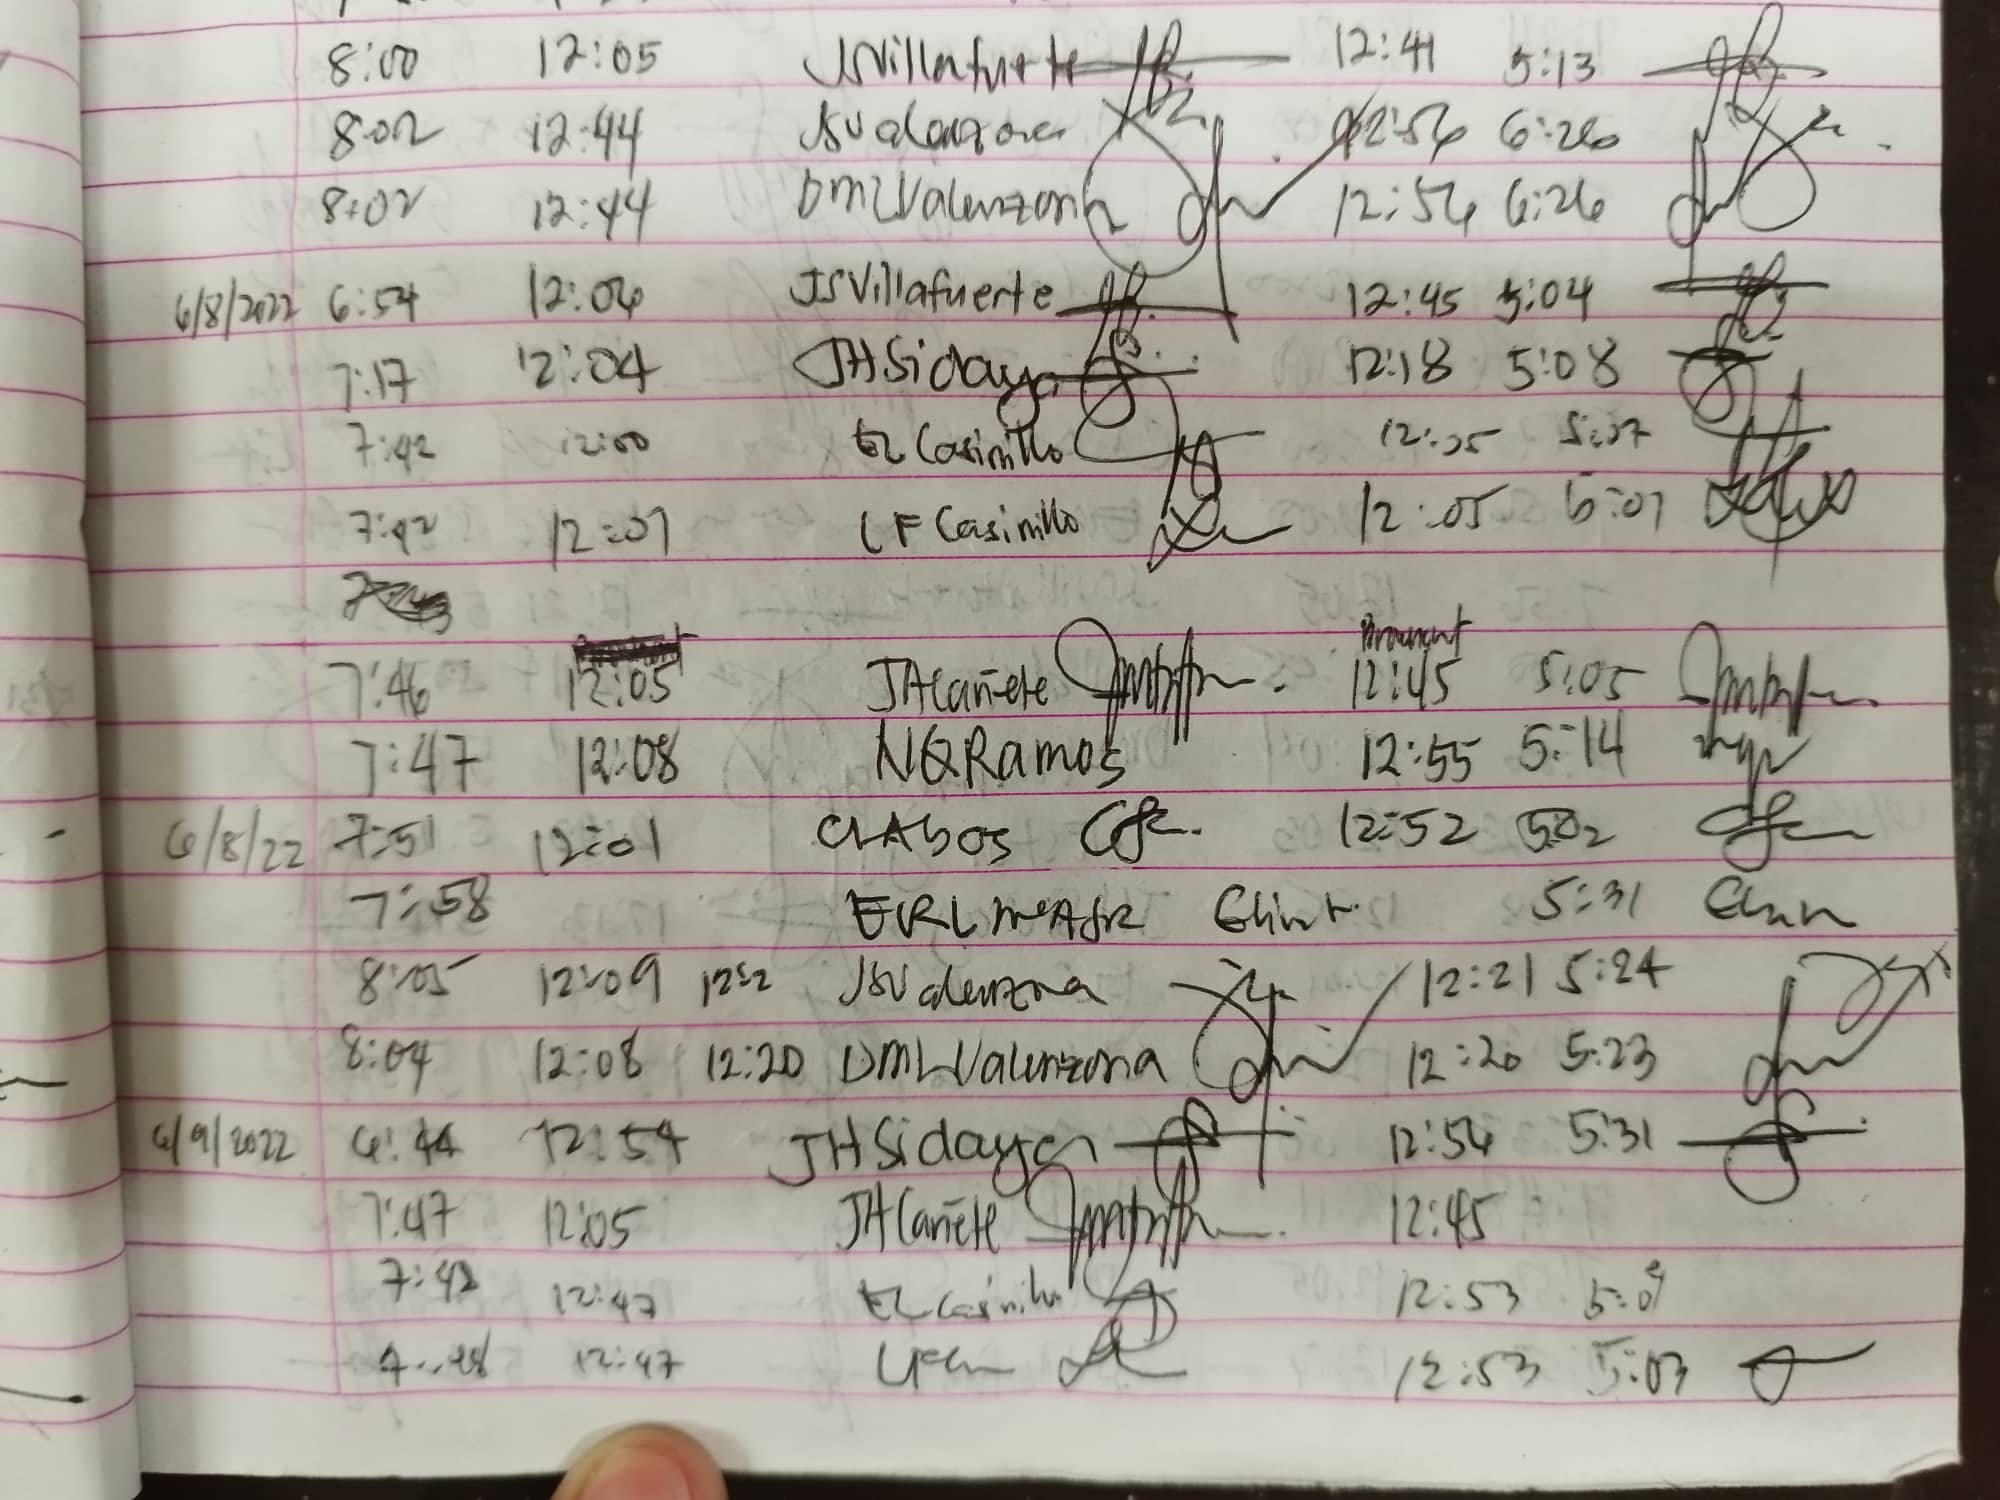 8:00 12:05 JSVillafuerte 12:41 5:13
8:02 12:44 JSValenzona 12:56 6:26
8:02 12:44 DMLValenzona 12:56 6:26
6/8/2022 6:54 12:06 JSVillafuerte 12:45 5:04
7:17 12:04 JHSidaya 12:18 5:08
7:42 12:00 EL Casinillo 12:05 5:07
7:42 12:01 LF Casinillo 12:05 5:07
7:46 12:05 JHCañete 12:45 5:05
7:47 12:08 NQRamos 12:55 5:14
6/8/22 7:51 12:01 CLAbos 12:52 5:02
7:58 5:31
8:05 12:09 JSValenzona 12:21 5:24
8:04 12:08 12:20 DMLValenzona 12:20 5:23
6/9/2022 6:44 12:54 JHSidaya 12:54 5:31
7:47 12:05 JHCañete 12:45
7:48 12:47 EL Casinillo 12:53
12:47 12:53 5:03